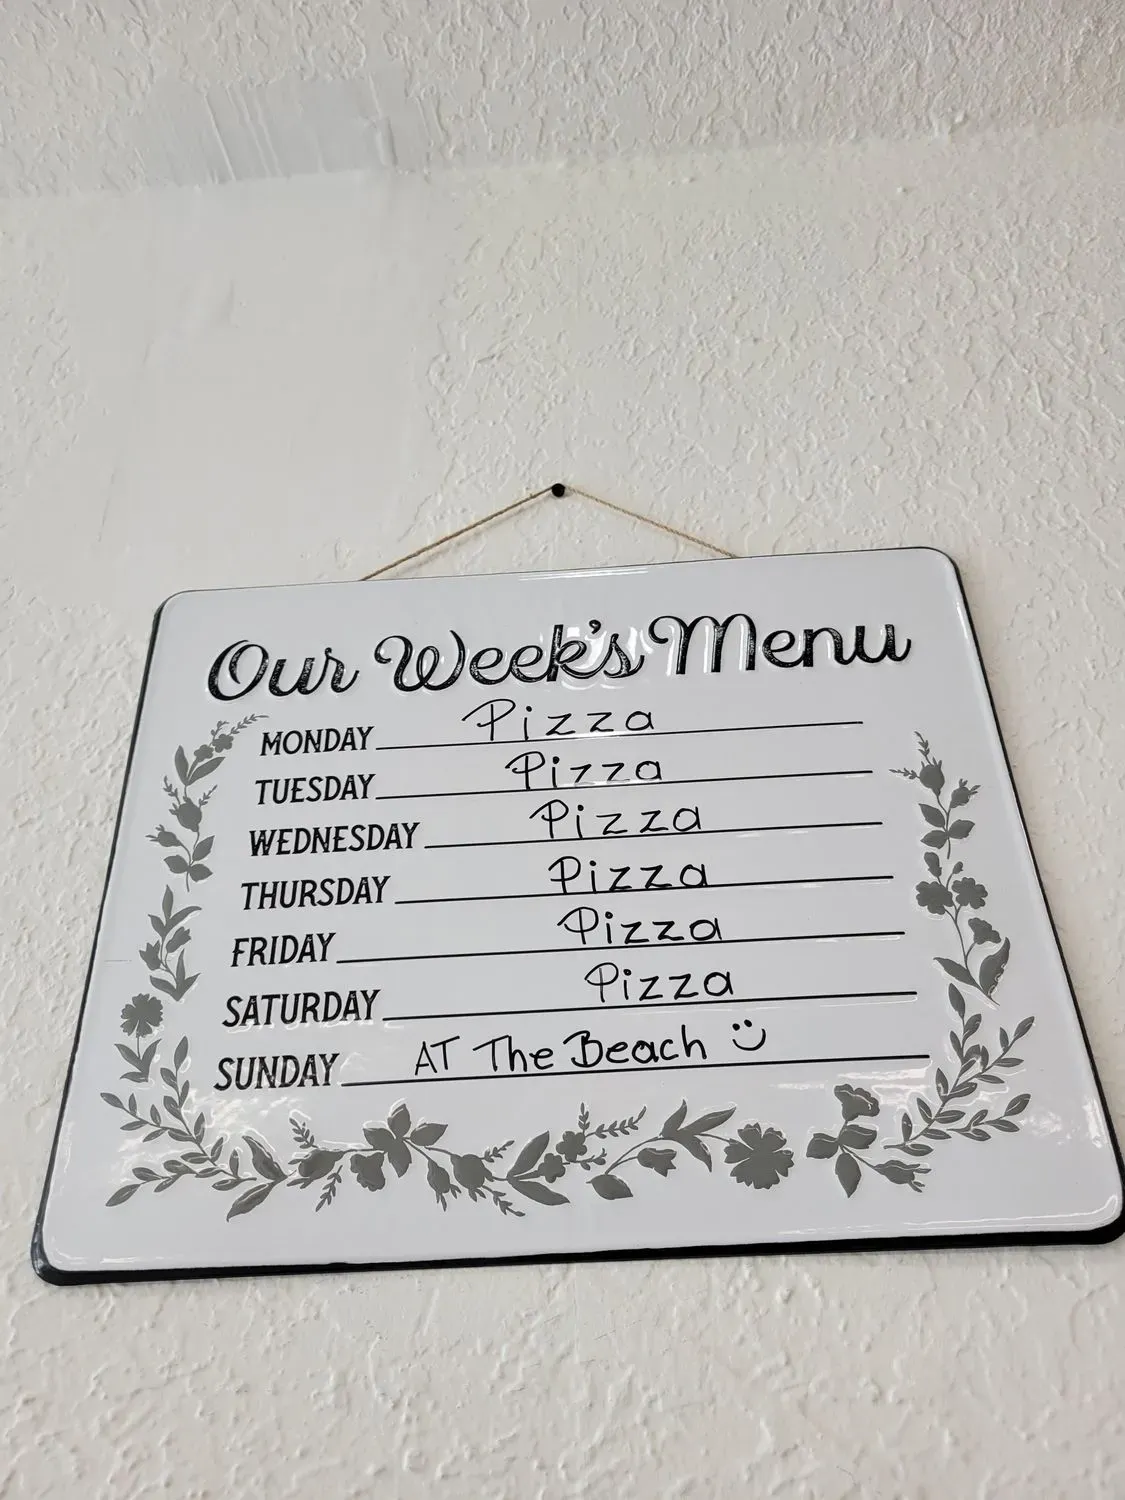 Our Week's Menu
MONDAY Pizza
TUESDAY Pizza
WEDNESDAY Pizza
THURSDAY Pizza
FRIDAY Pizza
SATURDAY Pizza
SUNDAY AT The Beach ü